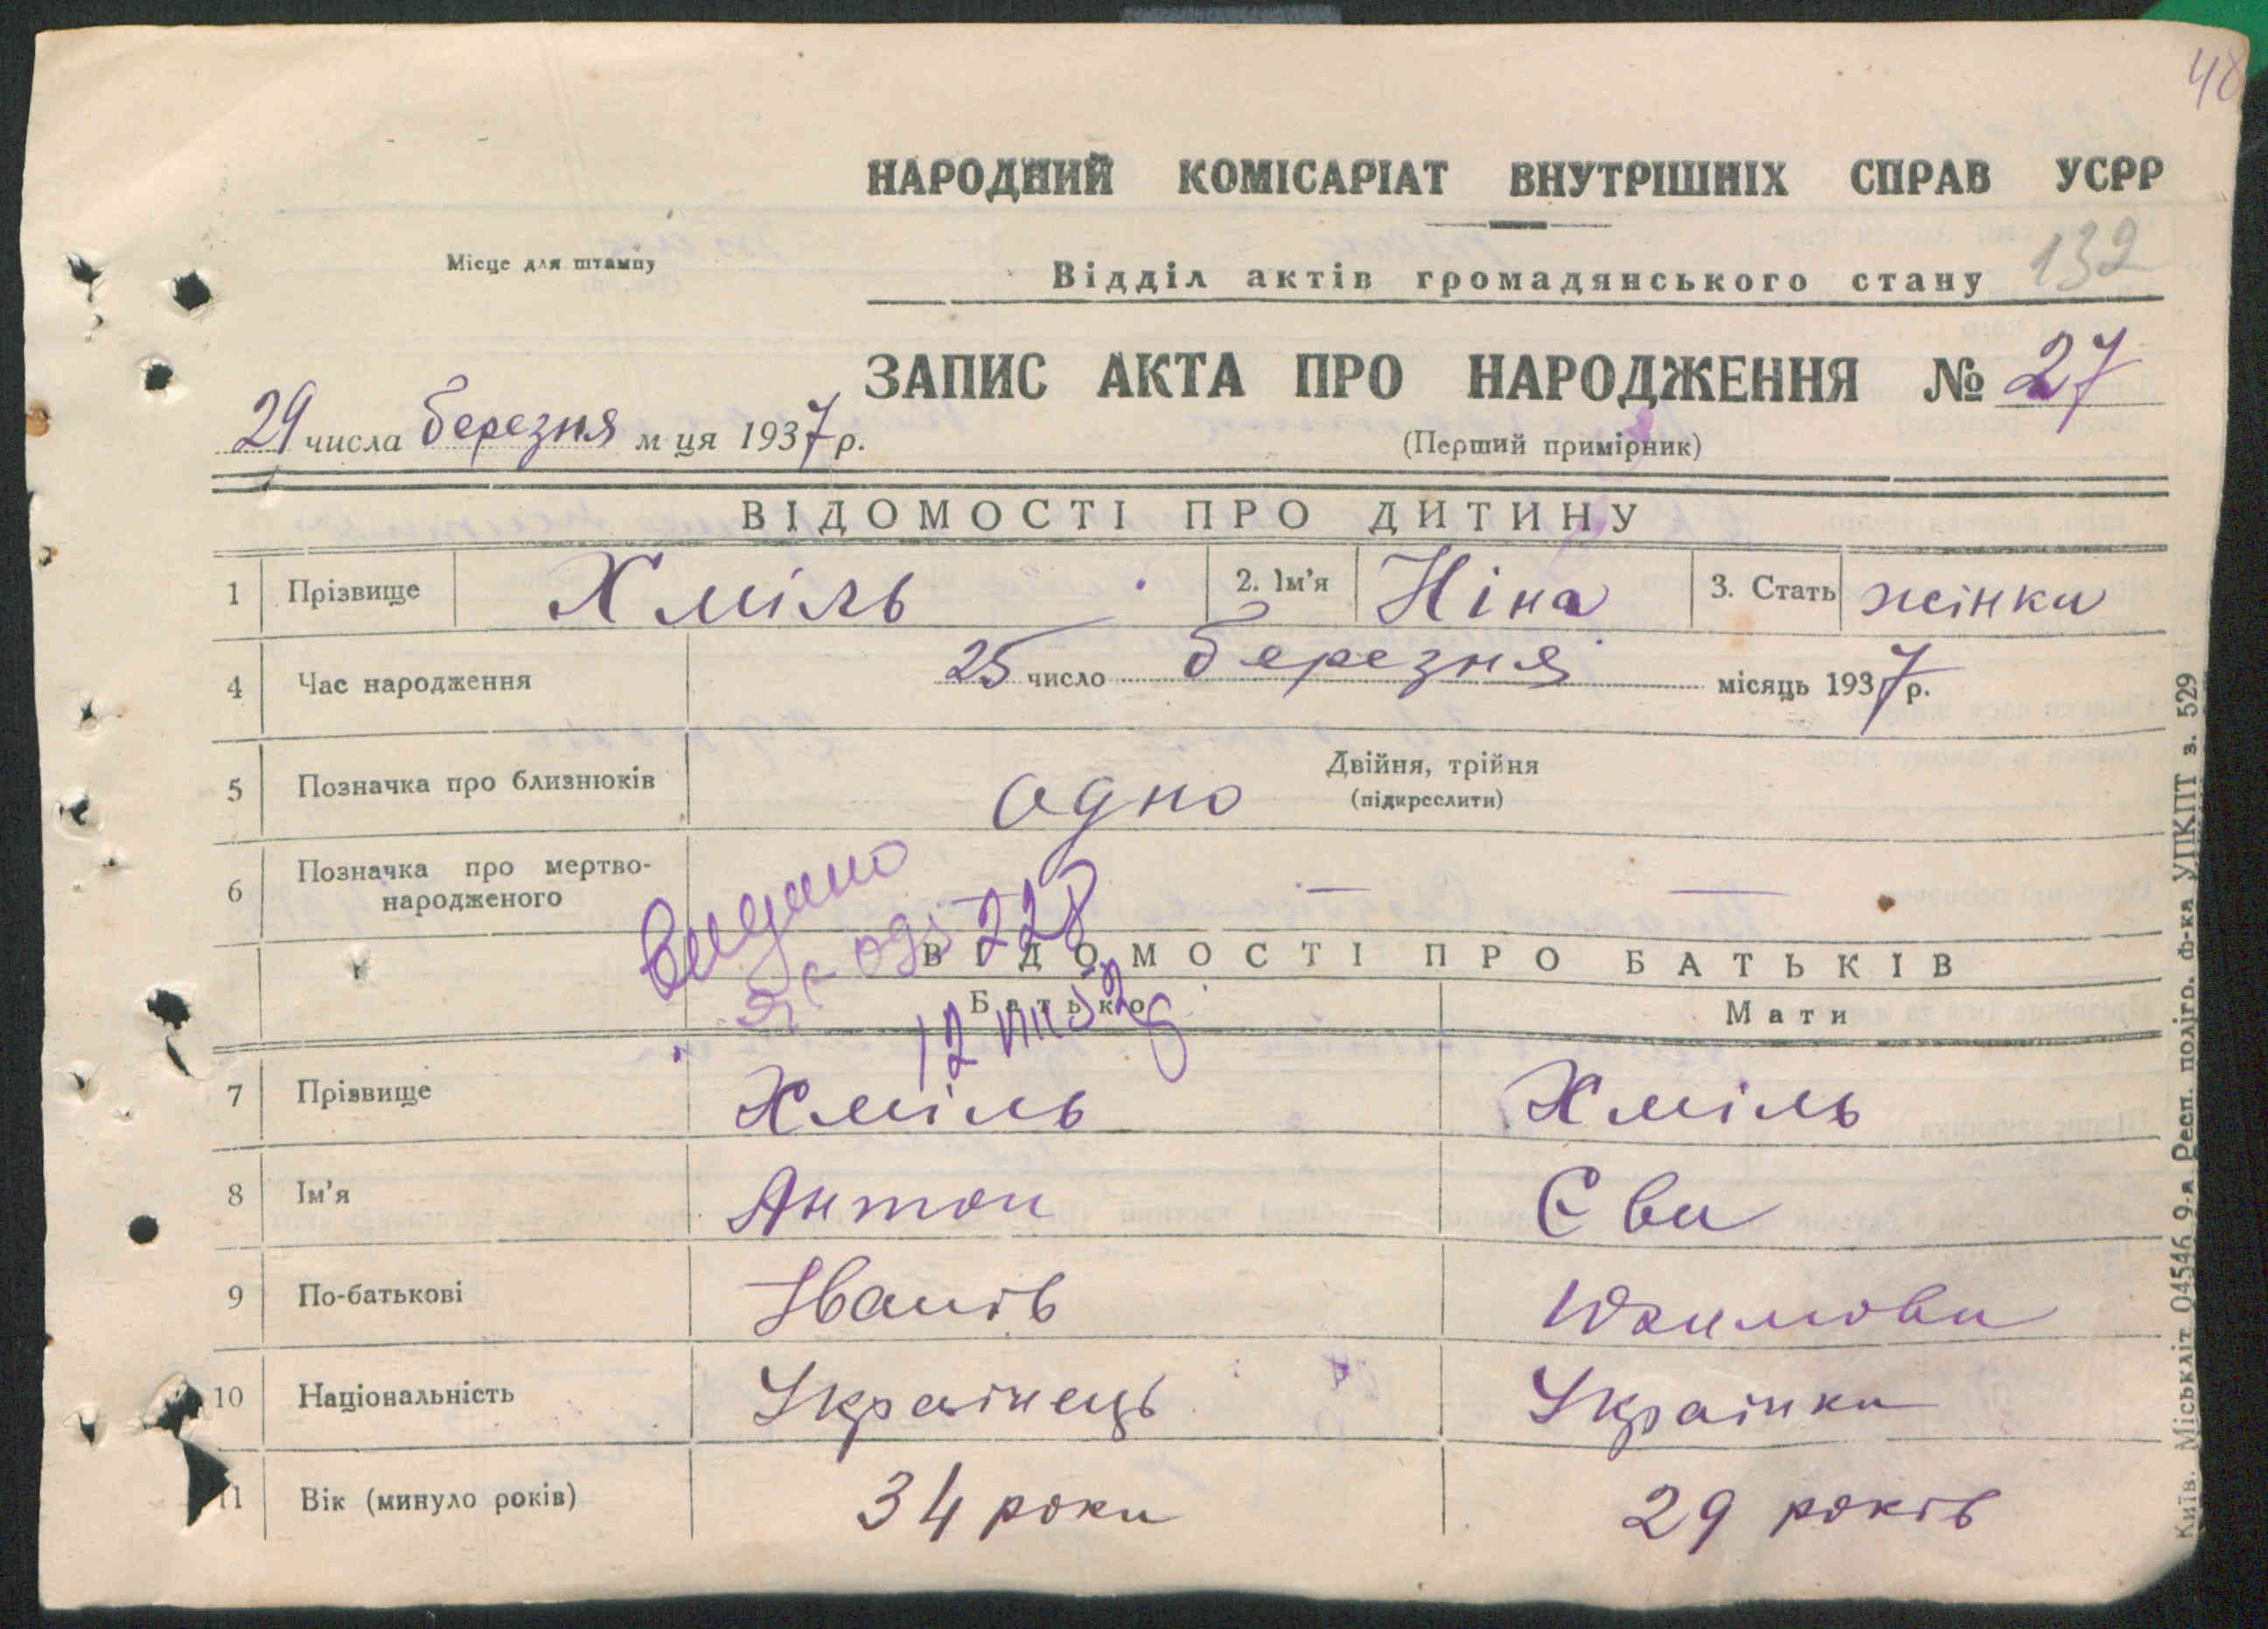 48
НАРОДНИЙ КОМІСАРІАТ ВНУТРІШНІХ СПРАВ УСРР
Місце для штампу
Відділ актів громадянського стану 132
ЗАПИС АКТА ПРО НАРОДЖЕННЯ № 27
29 числа березня м ця 1937 р.
(Перший примірник)
ВІДОМОСТІ ПРО ДИТИНУ
1 Прізвище Хміль 2. Ім'я Ніна 3. Стать жінки
4 Час народження 25 число березня місяць 1937 р.
5 Позначка про близнюків одно Двійня, трійня
(підкреслити)
6 Позначка про мертво-
народженого — —
видано
228
ВІДОМОСТІ ПРО БАТЬКІВ
Батько Мати
12
7 Прізвище Хміль Хміль
8 Ім'я Антон Єва
9 По-батькові Іванів
10 Національність Українець Українка
11 Вік (минуло років) 34 роки 29 років
Київ. Міськліт 04546 9-а Респ. поліго. ф-ка УПКПТ з. 529